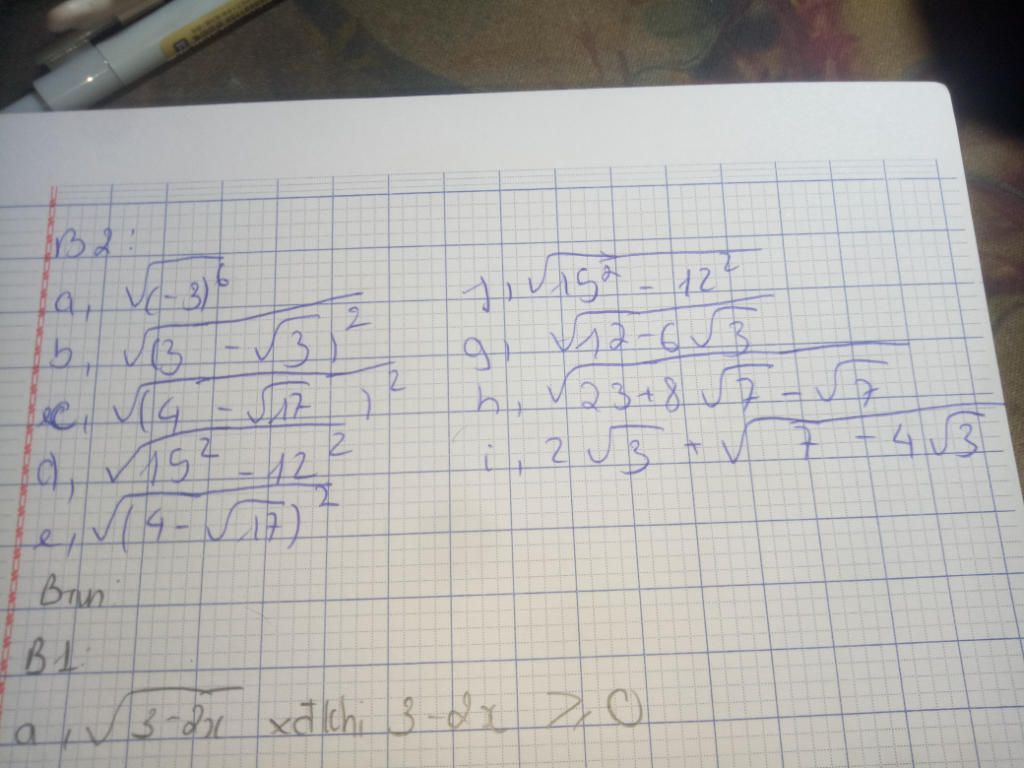 B2:
a, √(-3)⁶
b, √(3 - √3)²
c, √(4 - √17)²
d, √15² - 12²
e, √(4 - √17)²
f, √15² - 12²
g, √12 - 6√3
h, √23+8√7 - √7
i, 2√3 + √7 - 4√3
B1:
a, √3-2x xđ khi 3-2x ≥ 0